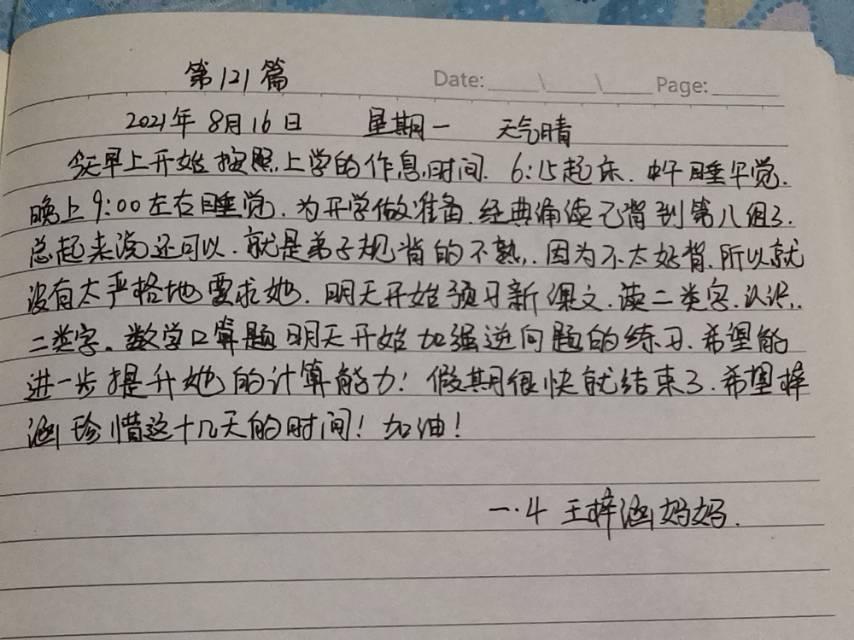 第121篇
Date: \ \ Page:
2021年8月16日 星期一 天气晴
今天早上开始按照上学的作息时间.6:15起床.中午睡午觉.
晚上9:00左右睡觉.为开学做准备.经典诵读已背到第八组了.
总起来说还可以.就是弟子规背的不熟,.因为不太好背.所以就
没有太严格地要求她.明天开始预习新课文.读二类字.认识..
二类字。数学口算题明天开始加强逆向题的练习.希望能
进一步提升她的计算能力!假期很快就结束了.希望梓
涵珍惜这十几天的时间!加油!
一.4 王梓涵妈妈.